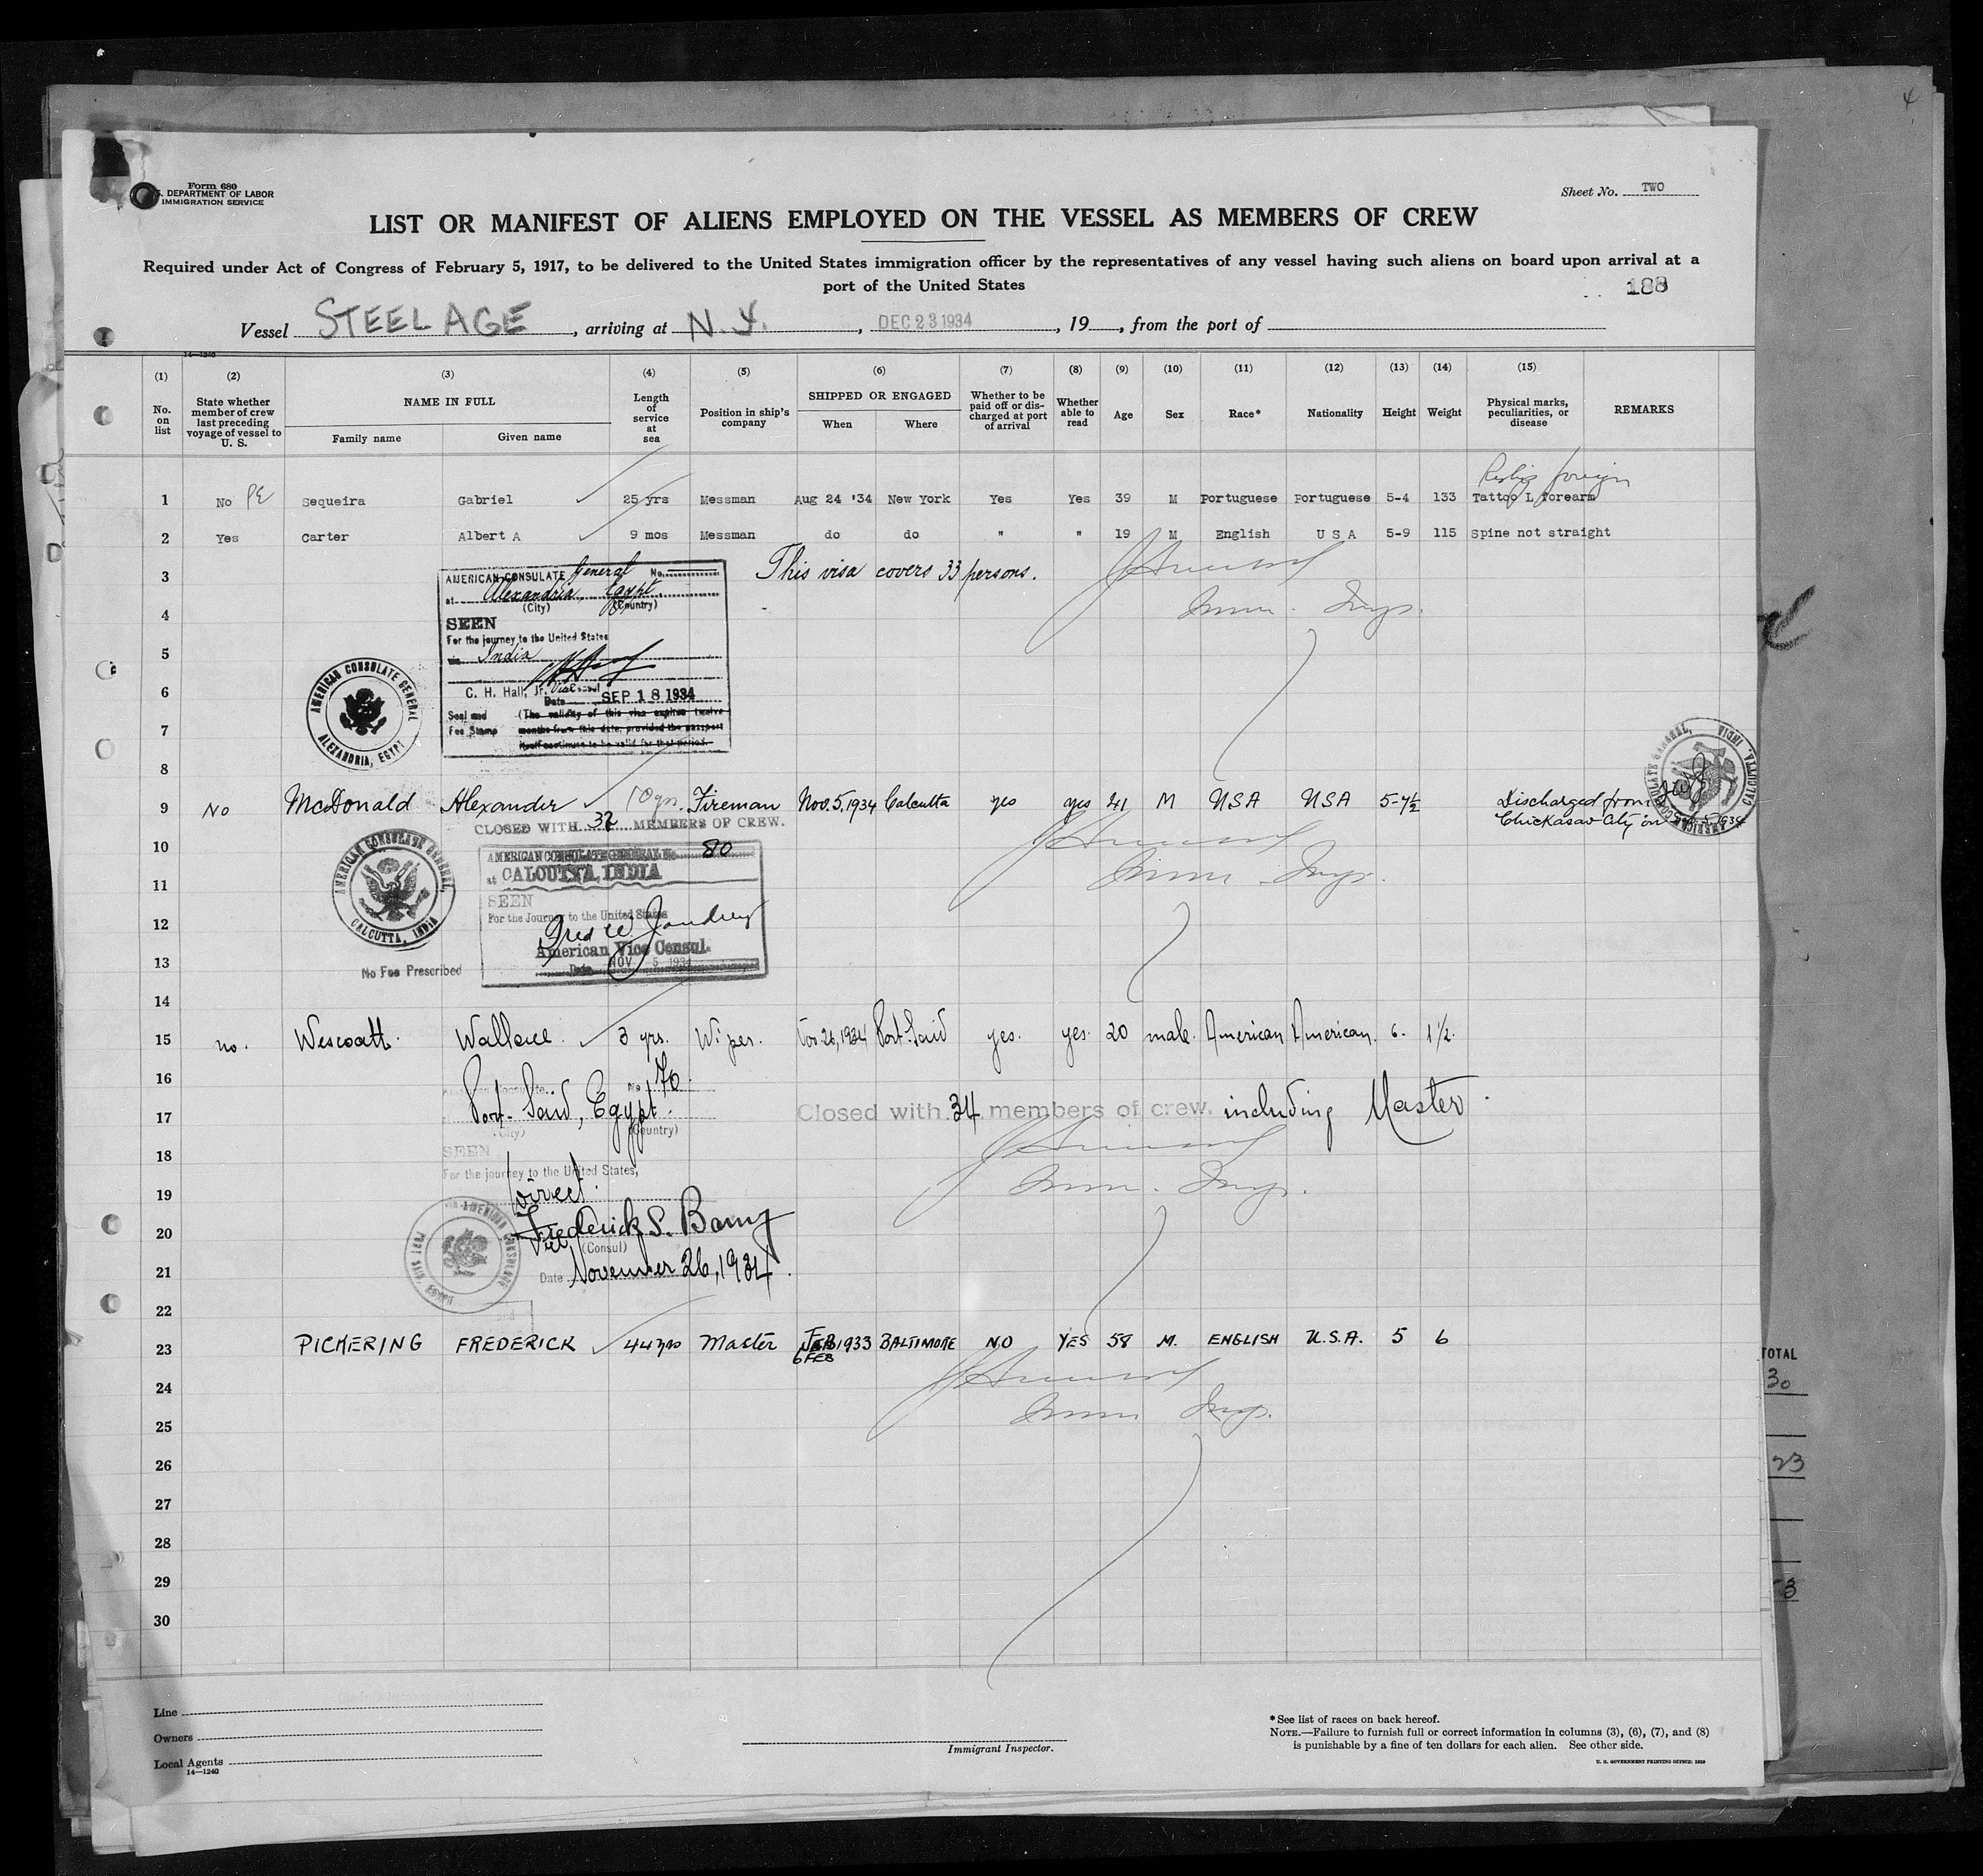 4
Form 680
S. DEPARTMENT OF LABOR
IMMIGRATION SERVICE
Sheet No. TWO
LIST OR MANIFEST OF ALIENS EMPLOYED ON THE VESSEL AS MEMBERS OF CREW
Required under Act of Congress of February 5, 1917, to be delivered to the United States immigration officer by the representatives of any vessel having such aliens on board upon arrival at a
port of the United States
188
Vessel STEEL AGE, arriving at N.Y., DEC 23 1934, 19, from the port of
14—1240
(1) (2) (3) (4) (5) (6) (7) (8) (9) (10) (11) (12) (13) (14) (15)
No. on list
State whether member of crew last preceding voyage of vessel to U. S.
NAME IN FULL
Family name Given name
Length of service at sea
Position in ship's company
SHIPPED OR ENGAGED
When Where
Whether to be paid off or discharged at port of arrival
Whether able to read
Age Sex Race* Nationality Height Weight
Physical marks, peculiarities, or disease
REMARKS
foreign
1 No PE Sequeira Gabriel 25 yrs Messman Aug 24 '34 New York Yes Yes 39 M Portuguese Portuguese 5-4 133 Tattoo L forearm
2 Yes Carter Albert A 9 mos Messman do do " " 19 M English U S A 5-9 115 Spine not straight
3 This visa covers 33 persons.
AMERICAN CONSULATE General No.
at Alexandria, Egypt
(City) (Country)
4 Imm. Insp.
SEEN
For the journey to the United States
5 via India
6 C. H. Hall, Jr. Vice Consul
Date SEP 18 1934
Seal and Fee Stamp
(The validity of this visa expires twelve
months from this date, provided the passport
itself continues to be valid for that period.
AMERICAN CONSULATE GENERAL
ALEXANDRIA, EGYPT
7
8
AMERICAN CONSULATE GENERAL, CALCUTTA, INDIA
9 No McDonald Alexander 10 yrs. Fireman Nov. 5, 1934 Calcutta yes yes 41 M USA USA 5-7½ Discharged from
Chickasaw City on
CLOSED WITH 32 MEMBERS OF CREW.
10
AMERICAN CONSULATE GENERAL No. 80
at CALCUTTA, INDIA
11 Imm. Insp.
SEEN
For the Journey to the United States
12
American Vice Consul.
13 Date NOV 5 1934
AMERICAN CONSULATE GENERAL,
CALCUTTA, INDIA
No Fee Prescribed
14
15 no. Wescoatt. Wallace. 3 yrs. Wiper. Nov. 26, 1934 Port-Said yes. yes. 20 male. American American. 6. 1½.
16 No 76.
17 Port-Said, Egypt.
(City) (Country)
Closed with 34 members of crew. including Master.
18 SEEN
For the journey to the United States,
19 Direct.
Imm. Insp.
20 Frederick S.
Vice (Consul)
21 Date November 26, 1934.
AMERICAN CONSULATE
PORT SAID, EGYPT
22
23 PICKERING FREDERICK 44 yrs Master FEB 1933 BALTIMORE NO YES 58 M. ENGLISH U.S.A. 5 6
6 FEB
24
25 Imm Insp.
26
27
28
29
30
TOTAL
30
23
3
Line
Owners
Local Agents
14—1240
Immigrant Inspector.
* See list of races on back hereof.
NOTE.—Failure to furnish full or correct information in columns (3), (6), (7), and (8)
is punishable by a fine of ten dollars for each alien. See other side.